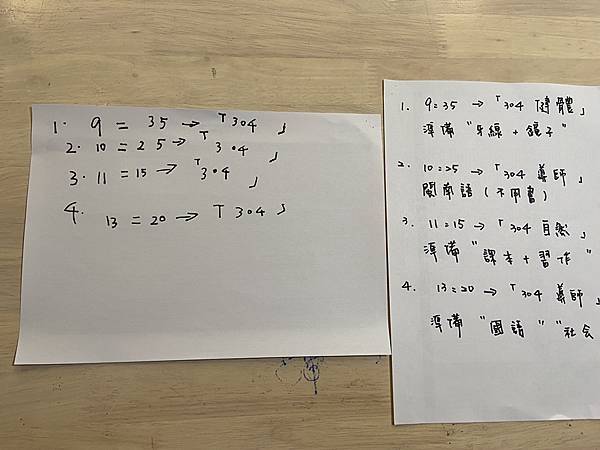 1. 9=35→「304 」
2. 10=25→「304 」
3. 11=15→「304 」
4. 13=20→「304」
1. 9=35→「304 健體」
準備"牙線+鏡子"
2. 10=25→「304 導師」
閩南語(不用書)
3. 11=15→「304 自然」
準備"課本+習作"
4. 13=20→「304 導師」
準備"國語""社会